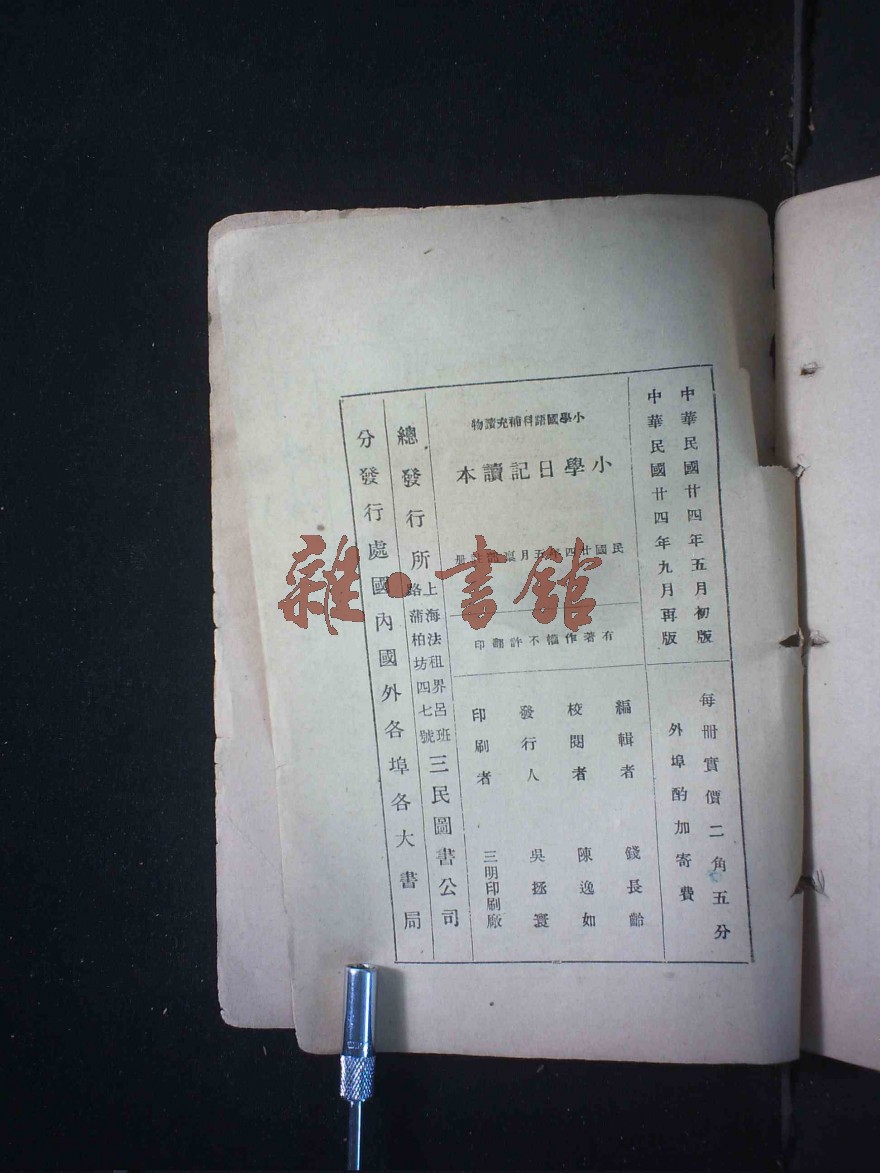 中華民國廿四年五月初版
中華民國廿四年九月再版
每冊實價二角五分
外埠酌加寄費
小學國語科補充讀物
小學日記讀本
民國廿四年五月 註冊
有著作權不許翻印
編輯者 錢長齡
校閱者 陳逸如
發行人 吳拯寰
印刷者 三明印刷廠
總發行所 上海法租界呂班路蒲柏坊四七號 三民圖書公司
分發行處國內國外各埠各大書局
雜·書館